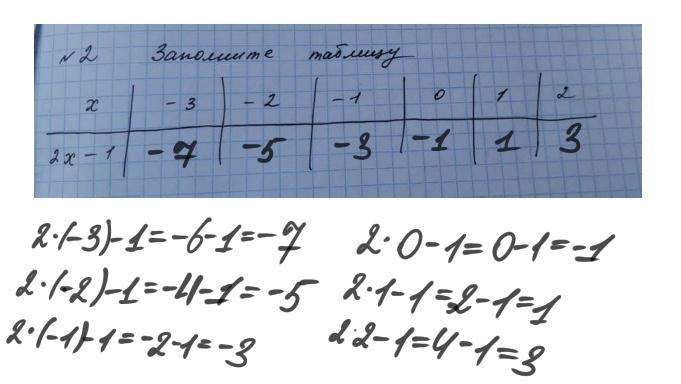 №2 Заполните таблицу
x -3 -2 -1 0 1 2
2x-1 -7 -5 -3 -1 1 3
2·(-3)-1=-6-1=-7
2·0-1=0-1=-1
2·(-2)-1=-4-1=-5
2·1-1=2-1=1
2·(-1)-1=-2-1=-3
2·2-1=4-1=3